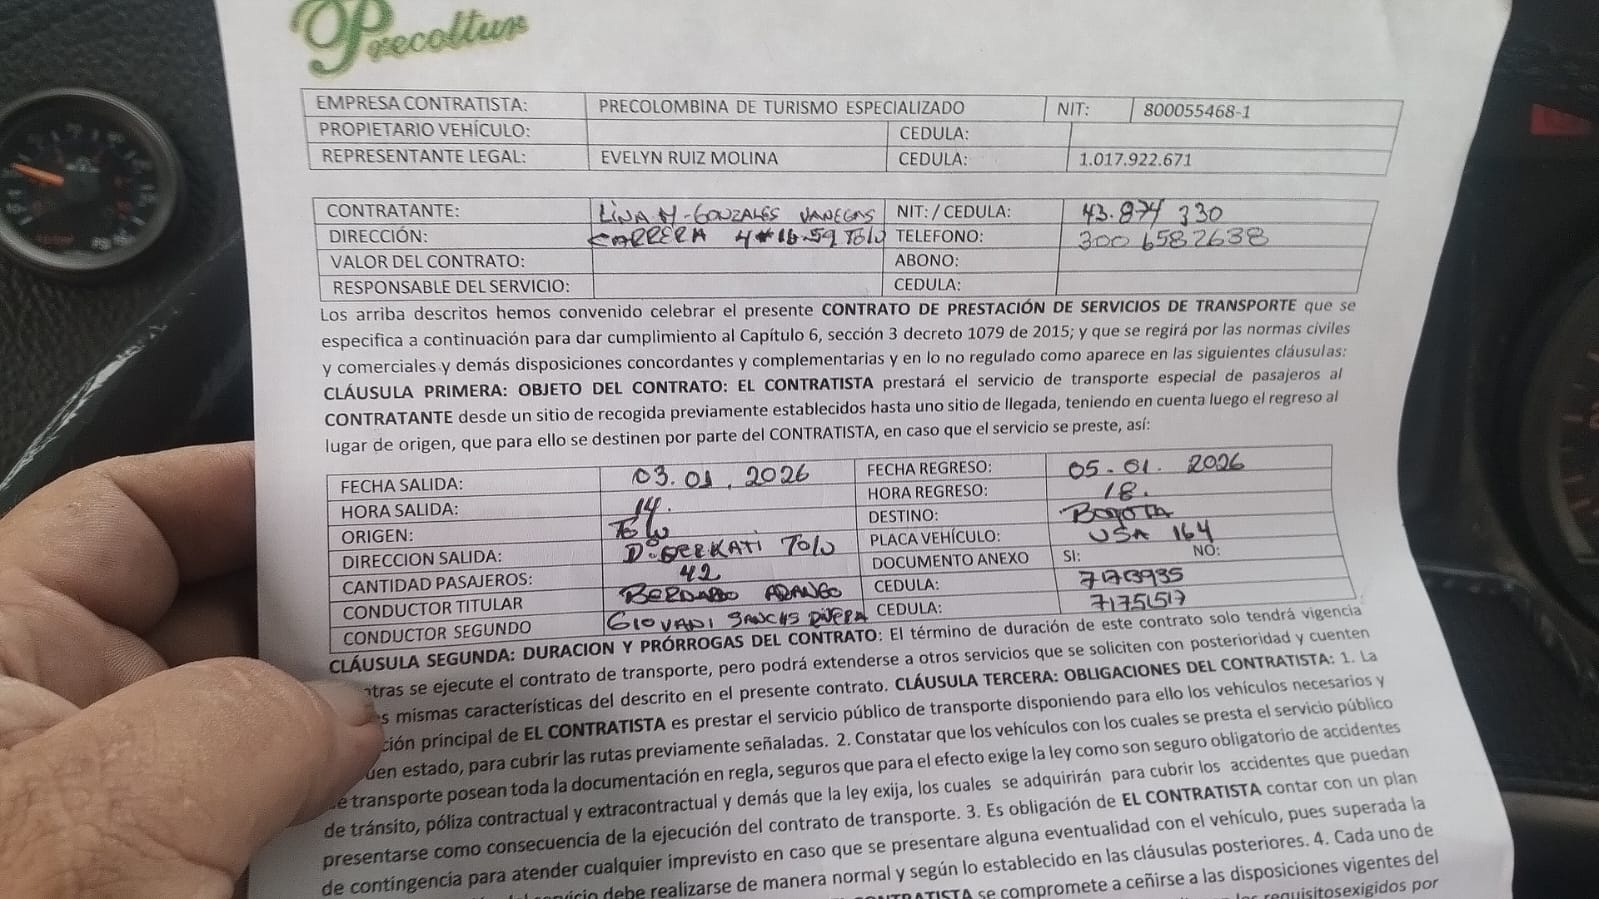 Precoltur
EMPRESA CONTRATISTA: PRECOLOMBINA DE TURISMO ESPECIALIZADO NIT: 800055468-1
PROPIETARIO VEHÍCULO: CEDULA:
REPRESENTANTE LEGAL: EVELYN RUIZ MOLINA CEDULA: 1.017.922.671
CONTRATANTE: LINA M-GONZALES VANEGAS NIT: / CEDULA: 43.874 330
DIRECCIÓN: CARRERA 4 # 16-59 Tolu TELEFONO: 300 6582638
VALOR DEL CONTRATO: ABONO:
RESPONSABLE DEL SERVICIO: CEDULA:
Los arriba descritos hemos convenido celebrar el presente CONTRATO DE PRESTACIÓN DE SERVICIOS DE TRANSPORTE que se
especifica a continuación para dar cumplimiento al Capítulo 6, sección 3 decreto 1079 de 2015; y que se regirá por las normas civiles
y comerciales y demás disposiciones concordantes y complementarias y en lo no regulado como aparece en las siguientes cláusulas:
CLÁUSULA PRIMERA: OBJETO DEL CONTRATO: EL CONTRATISTA prestará el servicio de transporte especial de pasajeros al
CONTRATANTE desde un sitio de recogida previamente establecidos hasta uno sitio de llegada, teniendo en cuenta luego el regreso al
lugar de origen, que para ello se destinen por parte del CONTRATISTA, en caso que el servicio se preste, así:
FECHA SALIDA: 03.01.2026 FECHA REGRESO: 05-01. 2026
HORA SALIDA: 14. HORA REGRESO: 18.
ORIGEN: Tolu DESTINO: BOGOTA
DIRECCION SALIDA: TOLU PLACA VEHÍCULO: USA 164
CANTIDAD PASAJEROS: 42 DOCUMENTO ANEXO SI: NO:
CONDUCTOR TITULAR BERNARDO ARANGO CEDULA:
CONDUCTOR SEGUNDO GIOVANI CEDULA: 71751517
CLÁUSULA SEGUNDA: DURACION Y PRÓRROGAS DEL CONTRATO: El término de duración de este contrato solo tendrá vigencia
tras se ejecute el contrato de transporte, pero podrá extenderse a otros servicios que se soliciten con posterioridad y cuenten
s mismas características del descrito en el presente contrato. CLÁUSULA TERCERA: OBLIGACIONES DEL CONTRATISTA: 1. La
ción principal de EL CONTRATISTA es prestar el servicio público de transporte disponiendo para ello los vehículos necesarios y
uen estado, para cubrir las rutas previamente señaladas. 2. Constatar que los vehículos con los cuales se presta el servicio público
e transporte posean toda la documentación en regla, seguros que para el efecto exige la ley como son seguro obligatorio de accidentes
de tránsito, póliza contractual y extracontractual y demás que la ley exija, los cuales se adquirirán para cubrir los accidentes que puedan
presentarse como consecuencia de la ejecución del contrato de transporte. 3. Es obligación de EL CONTRATISTA contar con un plan
de contingencia para atender cualquier imprevisto en caso que se presentare alguna eventualidad con el vehículo, pues superada la
debe realizarse de manera normal y según lo establecido en las cláusulas posteriores. 4. Cada uno de
CONTRATISTA se compromete a ceñirse a las disposiciones vigentes del
requisitosexigidos por